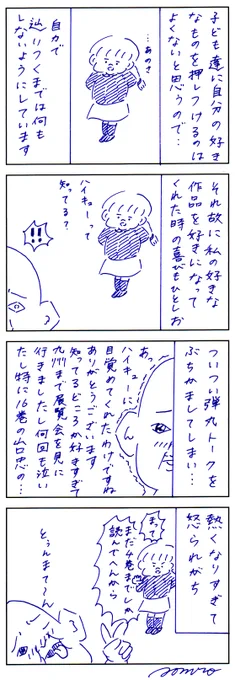 子ども達に自分の好き
なものを押しつけるのは
よくないと思うので…
…あのさ
自力で
辿りつくまでは何も
しないようにしています
それ故に私の好きな
作品を好きになって
くれた時の喜びもひとしお
ハイキューって
知ってる?
!!!
ついつい弾丸トークを
ぶちかましてしまい…
あっ
ハイキューに
目覚めてくれたわけですね
ありがとうございます
知ってるどころか好きすぎて
九州まで展覧会を見に
行きましたし何回も泣い
たし特に16巻の山口忠の…
熱くなりすぎて
怒られがち
まって
まだ4巻までしか
読んでへんから
とぅんまて〜ん